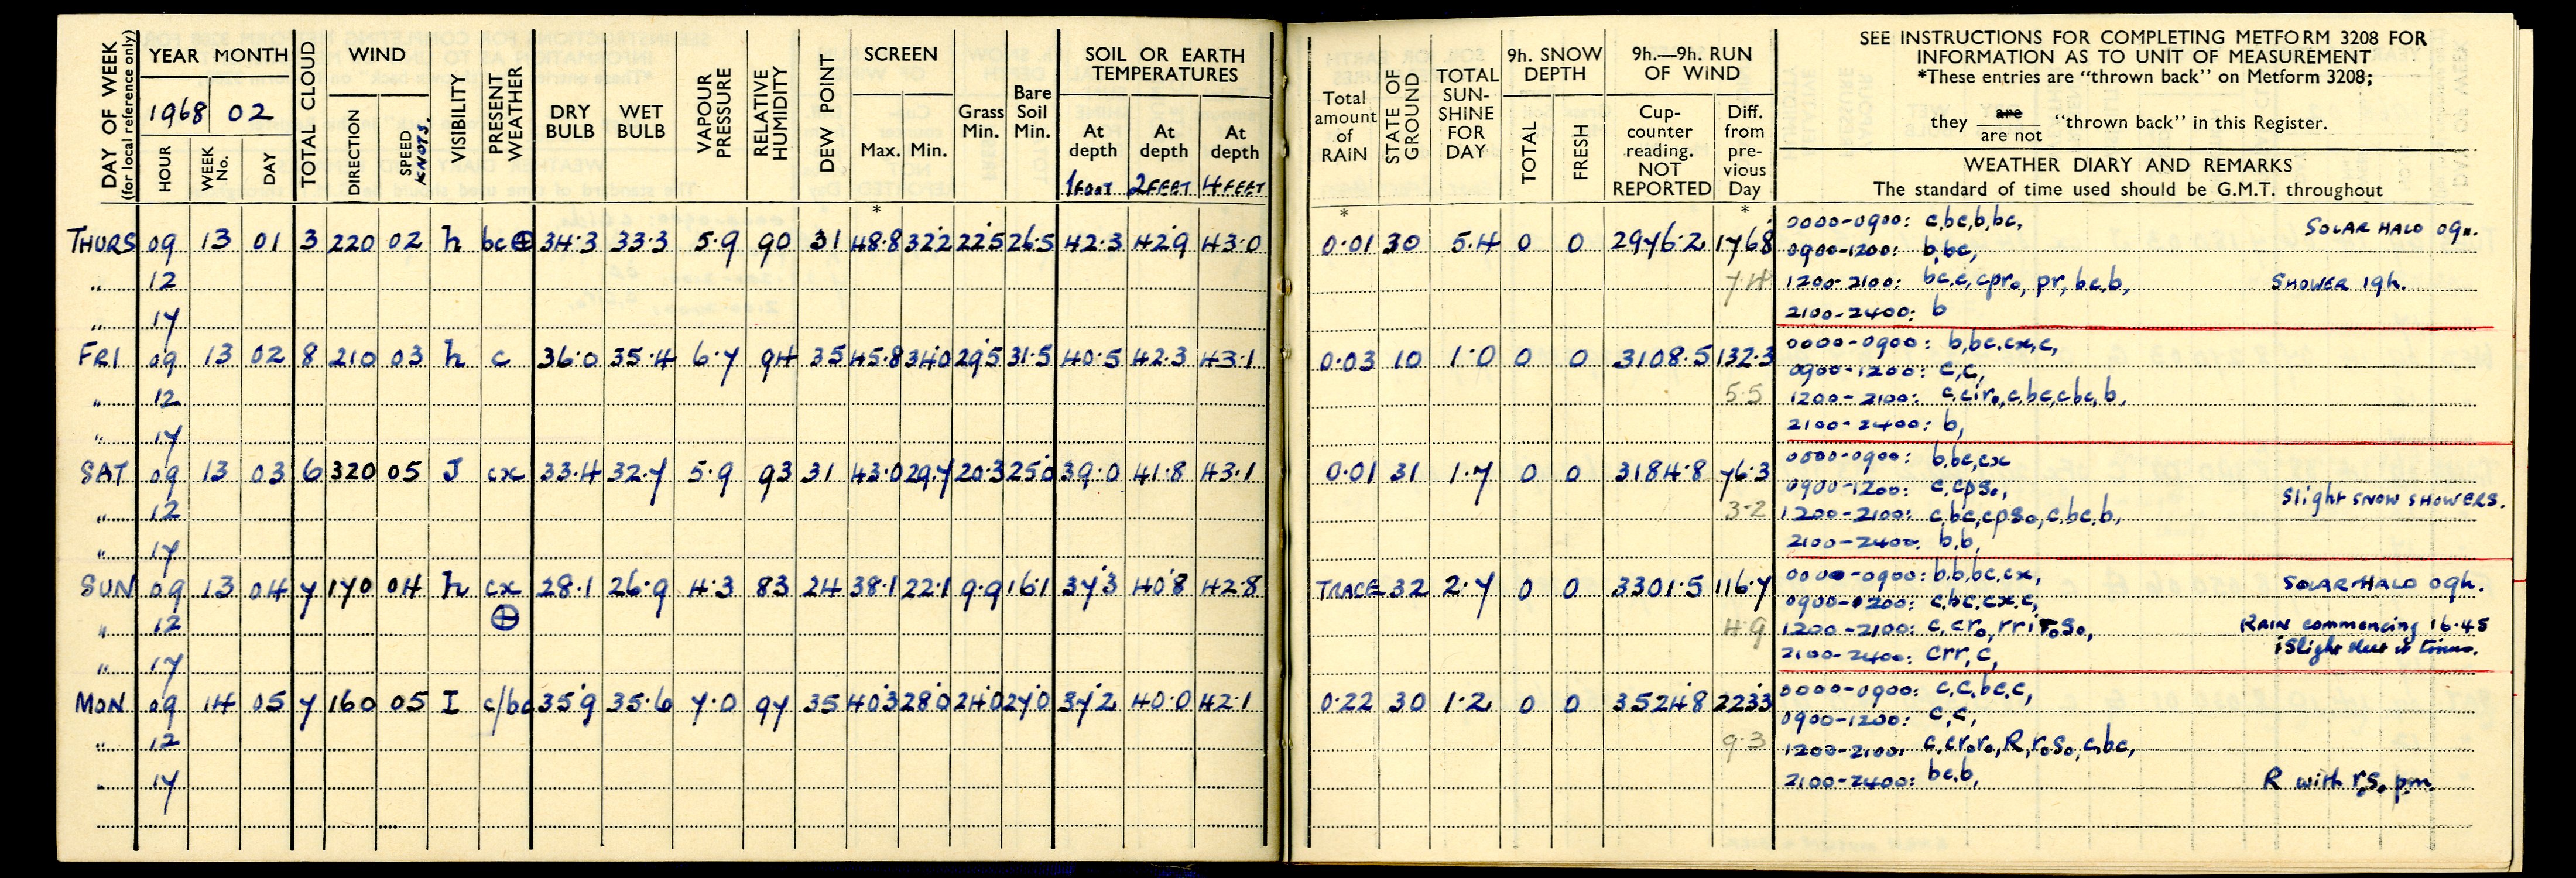 DAY OF WEEK (for local reference only) YEAR MONTH TOTAL CLOUD WIND VISIBILITY PRESENT WEATHER DRY BULB WET BULB VAPOUR PRESSURE RELATIVE HUMIDITY DEW POINT SCREEN Grass Min. Bare Soil Min. SOIL OR EARTH TEMPERATURES
1968 02
HOUR WEEK No. DAY DIRECTION SPEED KNOTS. Max. Min. At depth At depth At depth
1 FOOT 2 FEET 4 FEET
*
THURS 09 13 01 3 220 02 h bc⊕ 34·3 33·3 5·9 90 31 48·8 32·2 22·5 26·5 42·3 42·9 43·0
" 12
" 17
FRI 09 13 02 8 210 03 h c 36·0 35·4 6·7 94 35 45·8 34·0 29·5 31·5 40·5 42·3 43·1
" 12
" 17
SAT 09 13 03 6 320 05 J cx 33·4 32·7 5·9 93 31 43·0 29·7 20·3 25·0 39·0 41·8 43·1
" 12
" 17
SUN 09 13 04 7 170 04 h cx 28·1 26·9 4·3 83 24 38·1 22·1 9·9 16·1 37·3 40·8 42·8
" 12 ⊕
" 17
MON 09 14 05 7 160 05 I c/bc 35·9 35·6 7·0 97 35 40·3 28·0 24·0 27·0 37·2 40·0 42·1
" 12
" 17
Total amount of RAIN STATE OF GROUND TOTAL SUN-SHINE FOR DAY 9h. SNOW DEPTH 9h.—9h. RUN OF WIND
TOTAL FRESH Cup-counter reading. NOT REPORTED Diff. from pre-vious Day
* *
SEE INSTRUCTIONS FOR COMPLETING METFORM 3208 FOR
INFORMATION AS TO UNIT OF MEASUREMENT
*These entries are "thrown back" on Metform 3208;
they are / are not "thrown back" in this Register.
WEATHER DIARY AND REMARKS
The standard of time used should be G.M.T. throughout
0·01 30 5·4 0 0 2976·2 176·8
7·4
0000-0900: c,bc,b,bc, SOLAR HALO 09h.
0900-1200: b,bc,
1200-2100: bc,c,cpr₀, pr, bc,b, SHOWER 19h.
2100-2400: b
0·03 10 1·0 0 0 3108·5 132·3
5·5
0000-0900: b,bc,cx,c,
0900-1200: c,c,
1200-2100: c,cir₀,c,bc,cbc,b,
2100-2400: b,
0·01 31 1·7 0 0 3184·8 76·3
3·2
0000-0900: b,bc,cx
0900-1200: c,cps₀, Slight SNOW SHOWERS.
1200-2100: c,bc,cps₀,c,bc,b,
2100-2400: b,b,
TRACE 32 2·7 0 0 3301·5 116·7
4·9
0000-0900: b,b,bc,cx, SOLAR HALO 09h.
0900-1200: c,bc,cx,c,
1200-2100: c,cr₀,rrir₀s₀, RAIN commencing 16·45
2100-2400: crr,c, Slight sleet at times.
0·22 30 1·2 0 0 3524·8 223·3
9·3
0000-0900: c,c,bc,c,
0900-1200: c,c,
1200-2100: c,cr₀r₀,R,r₀s₀,c,bc,
2100-2400: bc,b, R with r₀s₀ pm.